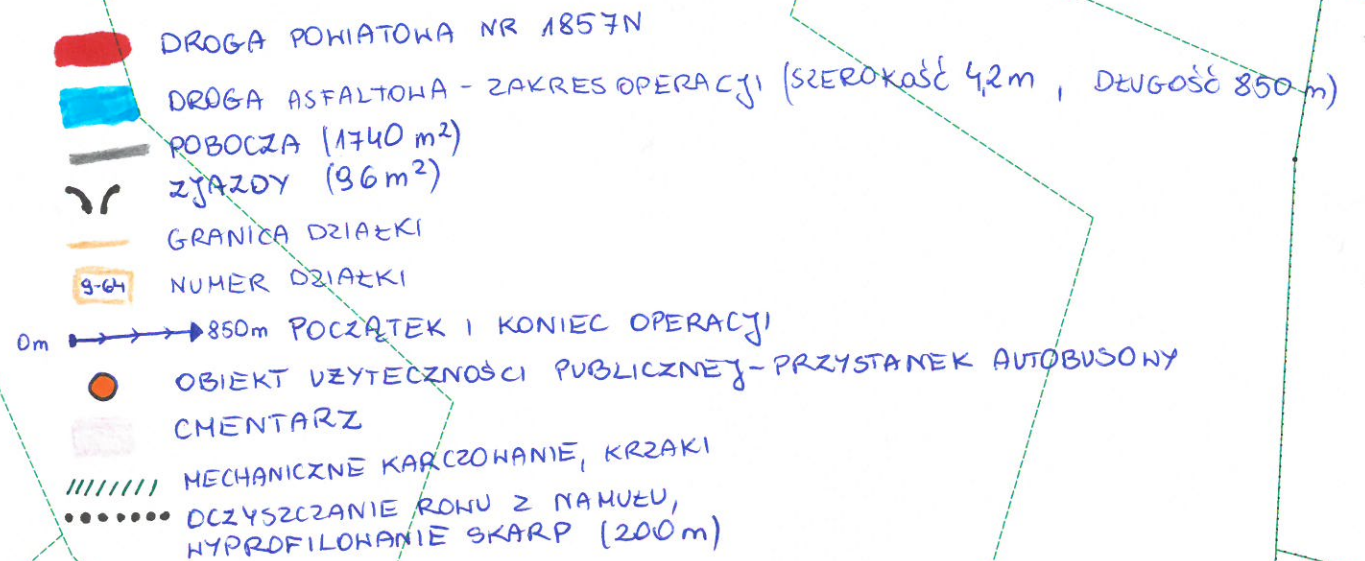 DROGA POWIATOWA NR 1857N
DROGA ASFALTOWA - ZAKRES OPERACJI (SZEROKOŚĆ 4,2m , DŁUGOŚĆ 850 m)
POBOCZA (1740 m²)
ZJAZDY (96m²)
GRANICA DZIAŁKI
9-64 NUMER DZIAŁKI
0m 850m POCZĄTEK I KONIEC OPERACJI
OBIEKT UŻYTECZNOŚCI PUBLICZNEJ-PRZYSTANEK AUTOBUSOWY
CMENTARZ
MECHANICZNE KARCZOWANIE, KRZAKI
OCZYSZCZANIE ROWU Z NAMUŁU,
WYPROFILOWANIE SKARP (200m)